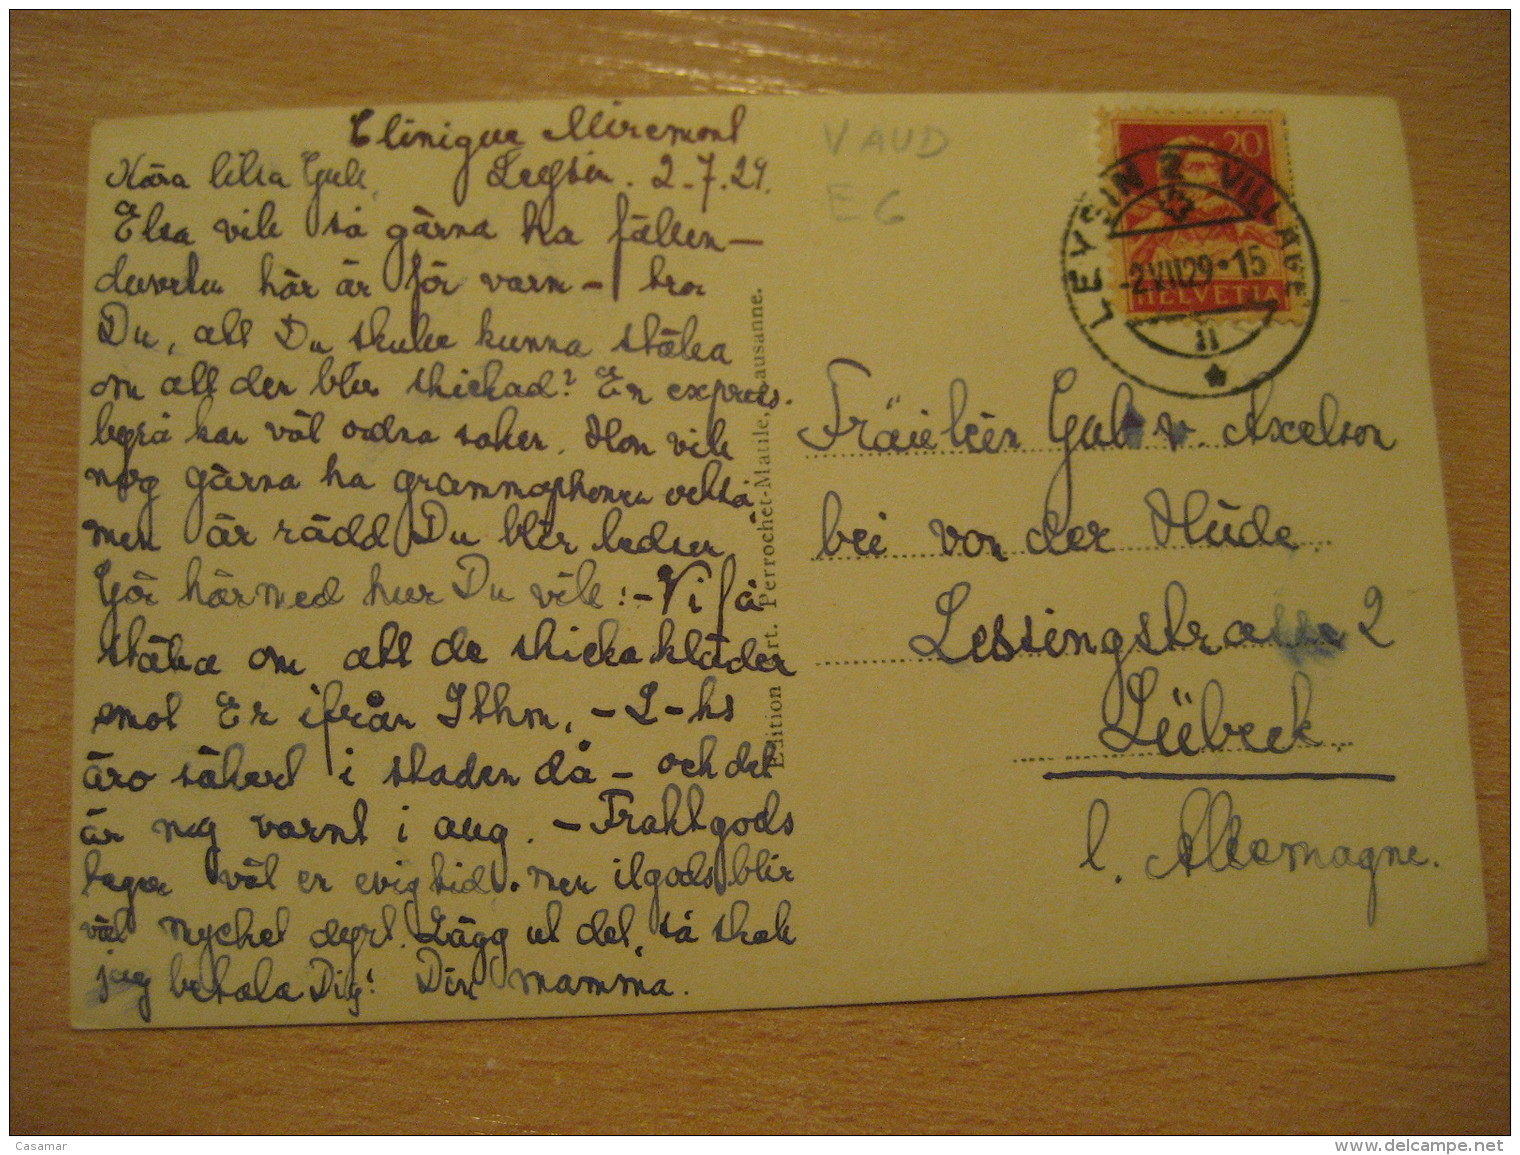 Clinique Miremont
Leysin. 2-7.29.
Kära lilla Gull,
Elsa vill så gärna ha fällen-
här är för varm - tror
Du, att Du skulle kunna ställa
om att den blir skickad? En express-
byrå kan väl ordna saken. Hon vill
nog gärna ha grammophonen också,
men är rädd Du blir ledsen
Gör härmed hur Du vill! - Vi få
ställa om att de skicka kläder
emot Er ifrån Sthm, - L-hs
äro säkert i staden då - och det
är nog varmt i aug. - Fraktgods
tager väl en evig tid. men ilgods blir
väl mycket dyrt. Lägg ut det, så skall
jag betala Dig! Din mamma.
Edition Art. Perrochet-Matile, Lausanne.
VAUD
E6
20
HELVETIA
LEYSIN 2 VILLAGE
-2.VII.29•15
Fräulein Gull v. Axelson
bei von der Hude
Lessingstrasse 2
Lübeck.
l. Allemagne.
Casamar
www.delcampe.net